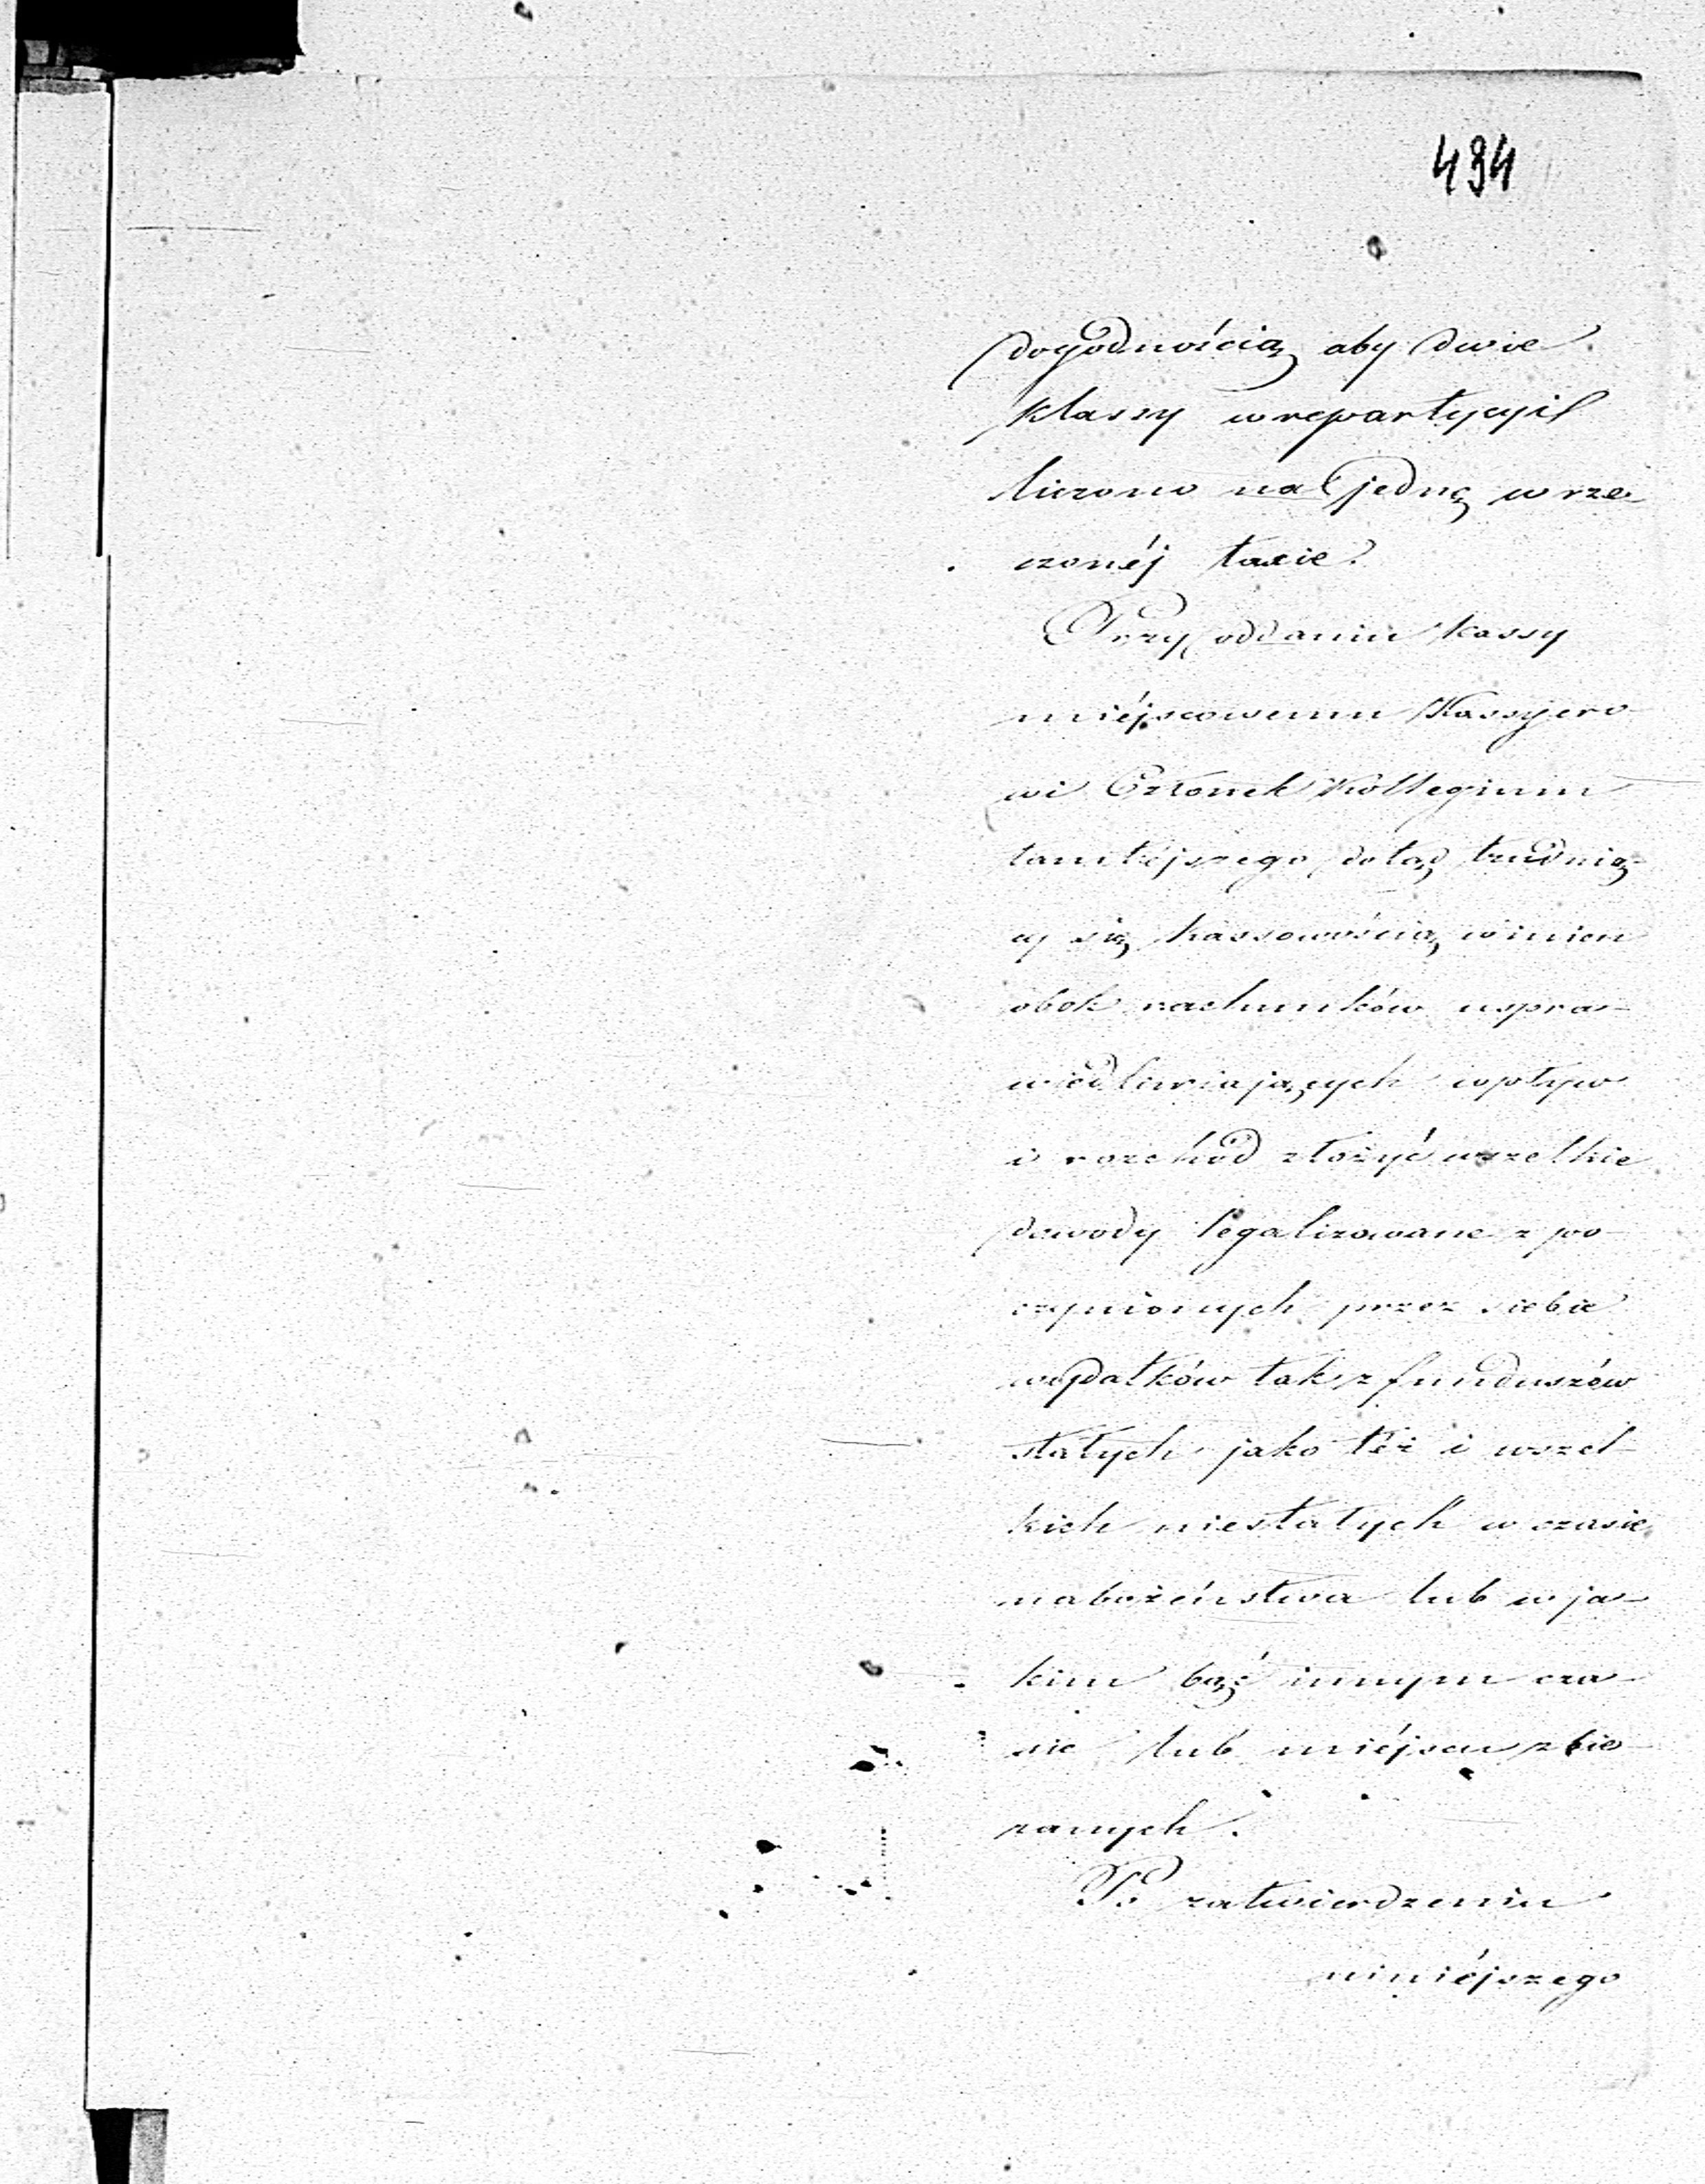 494
dogodnością aby dwie
klassy w repartycyi
liczono na jedną w rze-
czonéj taxie.
Przy oddaniu kassy
miéjscowemu Kassyjero-
wi Członek Kollegium
tamtéjszego dotąd trudnią-
cy się kassowością winien
obok rachunków uspra-
wiedliwiających wpływ
i rozchód złożyć wszelkie
dowody legalizowane z po-
czynionych przez siebie
wydatków tak z funduszów
stałych jako téż i wszel-
kich niestałych w czasie
nabożeństwa lub w ja-
kim bąć innym cza-
sie lub miéjscu zbie-
ranych.
Po zatwierdzeniu
niniéjszego